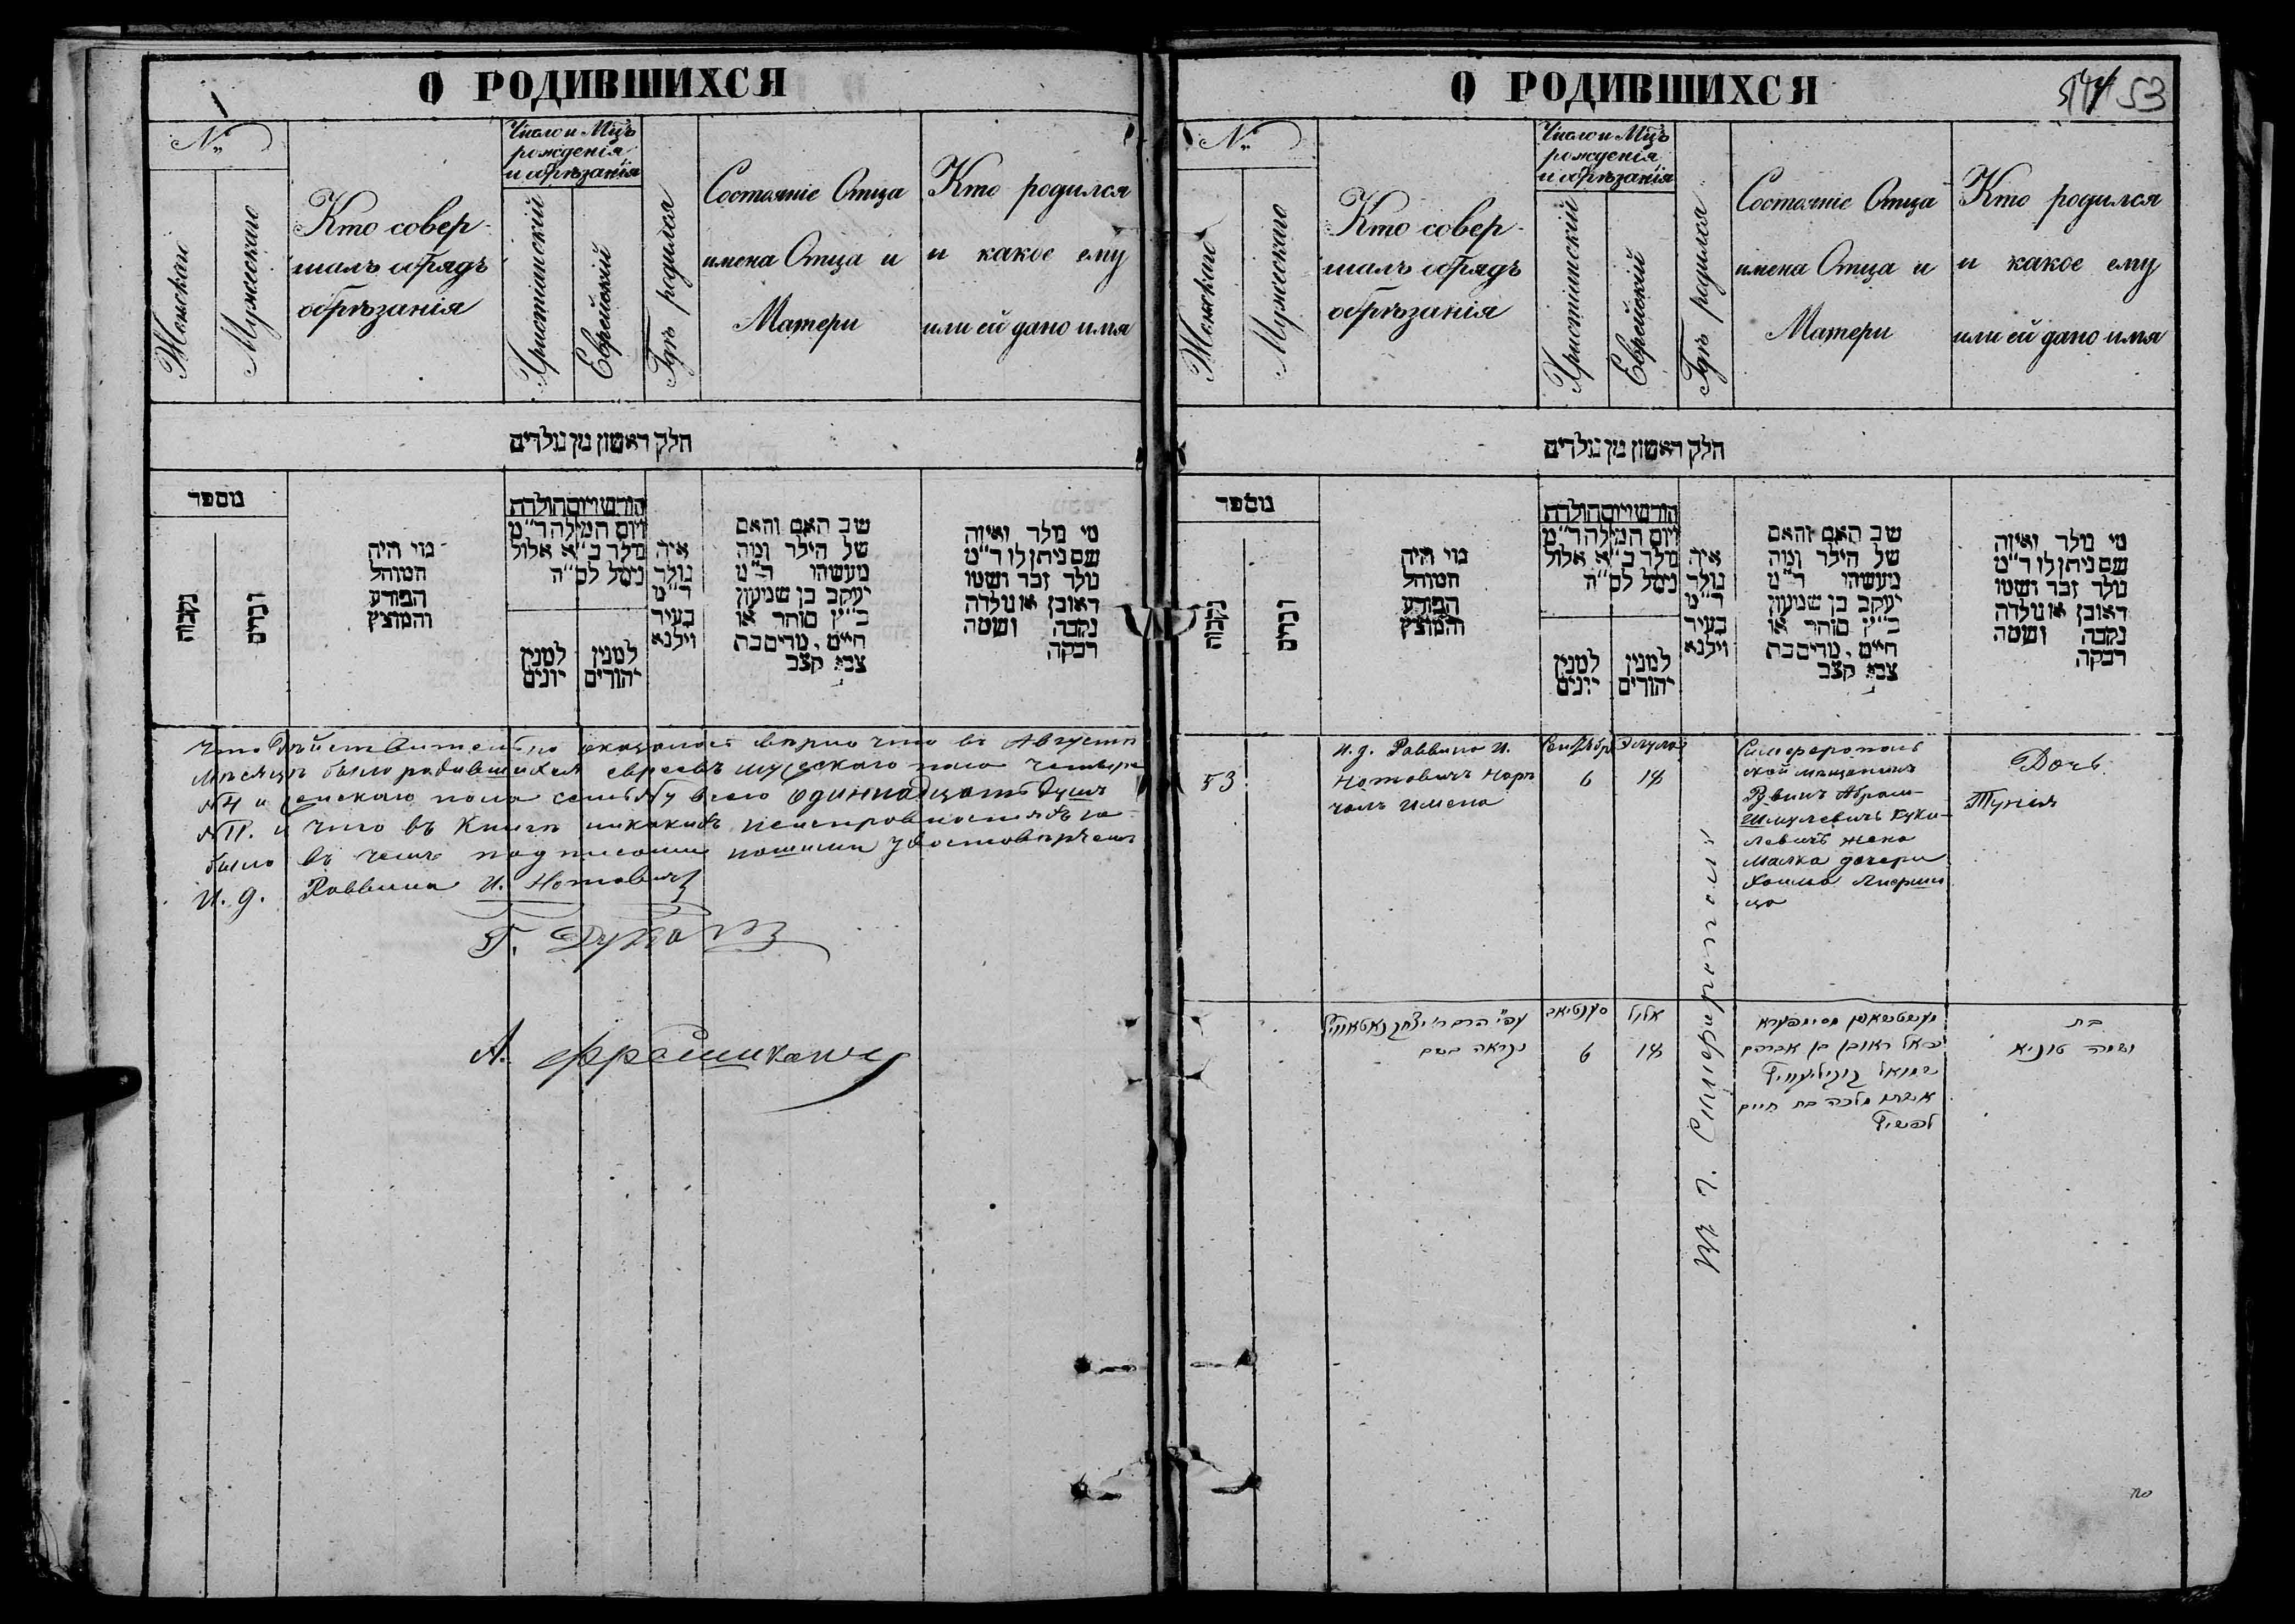 О РОДИВШИХСЯ
№
Женскаго
Мужескаго
Кто совер-
шалъ обрядъ
обрѣзанія
Число и Мцъ
рожденія
и обрѣзанія
Христіянскій
Еврейскій
Гдѣ родился
Состояніе Отца
имена Отца и
Матери
Кто родился
и какое ему
или ей дано имя
חלק ראשון מן נולדים
מספר
נקבות
זכרים
מי היה
המוהל
הפורע
והמוצץ
חודש ויום הולדת
ויום המילה ד״מ
נולד כ״א אלול
נימל לס״ה
למנין
יונים
למנין
יהודים
איה
נולד
ד״מ
בעיר
ווילנא
שב האם והאם
של הילד ומה
מעשהו ד״מ
יעקב בן שמעון
כ״ץ סוחר או
חיים, מרים בת
צבי קצב
מי נולד ואיזה
שם ניתן לו ד״מ
נולד זכר ושמו
ראובן או נולדה
נקבה ושמה
רבקה
что дѣйствительно оказалось вѣрно что въ Августѣ
мѣсяцѣ было родившихся евреевъ мужескаго пола четыре
№ 4 и женскаго пола семь № 7 всего одиннадцать душъ
№ 11. и что въ книгѣ никакихъ неисправностей не
было въ чемъ подписями нашими удостовѣряемъ
И. д. Раввина И. Нотовичъ
А.
О РОДИВШИХСЯ
53
№
Женскаго
Мужескаго
Кто совер-
шалъ обрядъ
обрѣзанія
Число и Мцъ
рожденія
и обрѣзанія
Христіянскій
Еврейскій
Гдѣ родился
Состояніе Отца
имена Отца и
Матери
Кто родился
и какое ему
или ей дано имя
חלק ראשון מן נולדים
מספר
נקבות
זכרים
מי היה
המוהל
הפורע
והמוצץ
חודש ויום הולדת
ויום המילה ד״מ
נולד כ״א אלול
נימל לס״ה
למנין
יונים
למנין
יהודים
איה
נולד
ד״מ
בעיר
ווילנא
שב האם והאם
של הילד ומה
מעשהו ד״מ
יעקב בן שמעון
כ״ץ סוחר או
חיים, מרים בת
צבי קצב
מי נולד ואיזה
שם ניתן לו ד״מ
נולד זכר ושמו
ראובן או נולדה
נקבה ושמה
רבקה
53.
И. д. Раввина И.
Нотовичъ наре
чалъ имена
Сентябр
6
Элула
18
Въ г. Симферополѣ
Симферополь
ской мѣщанинъ
Рувинъ Абрам-
Шмулевичъ Куки-
левичъ жена
Малка дочери
Хаима
Дочь
Тунія
נקראה בשם
6
אלול
18
ראובן בן אברהם
שמואל
אשתו מלכה בת חיים
בת
ושמה טוניא